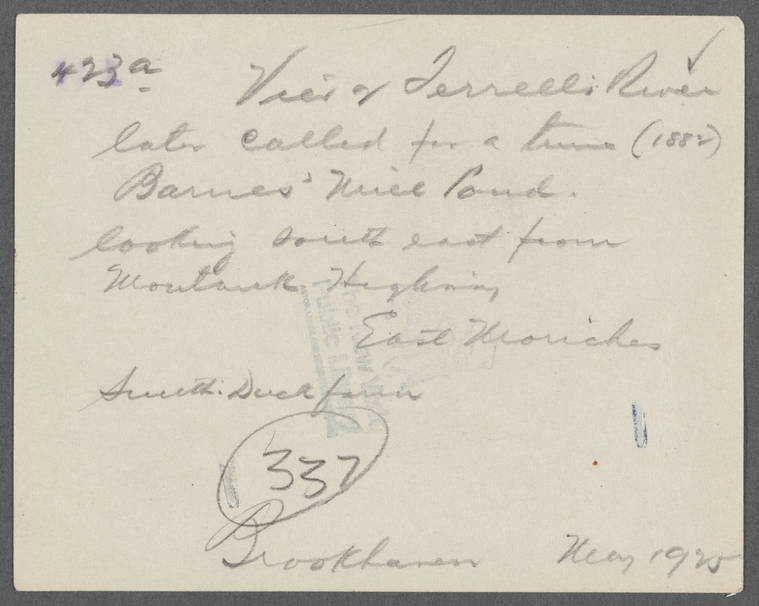 423a View of Terrell's River
later called for a time (1882)
Barnes' Mill Pond.
looking south east from
Montauk Highway
East Moriches
Smith. Duck farm
The New York
Public
337
Brookhaven May 1925